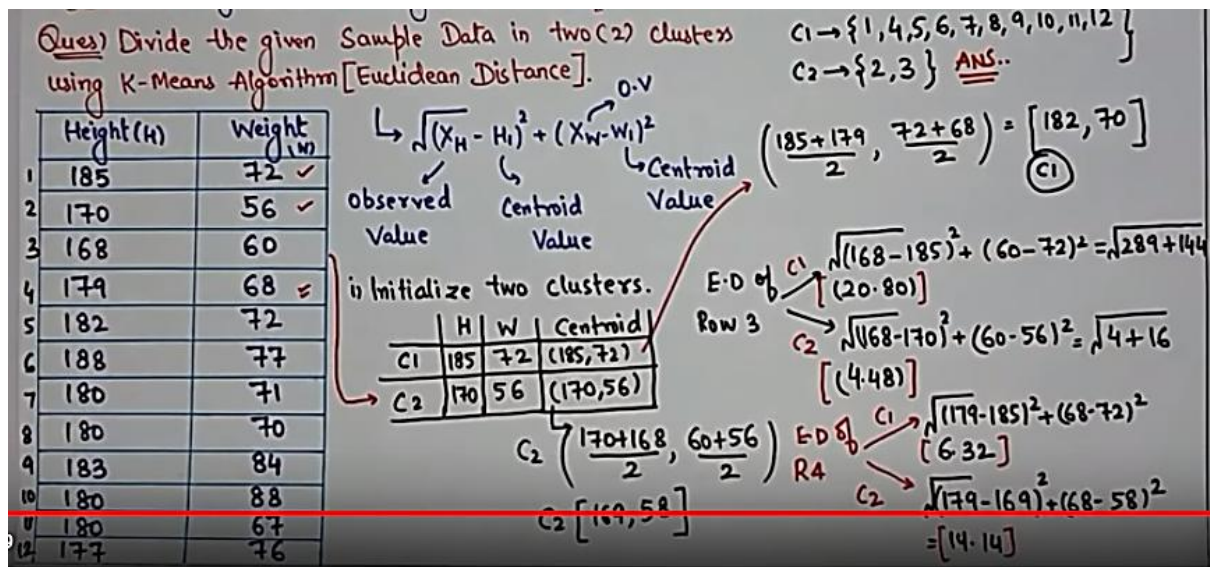 Ques) Divide the given Sample Data in two (2) clusters
using K-Means Algorithm [Euclidean Distance].
C1→{1,4,5,6,7,8,9,10,11,12}
C2→{2,3} ANS..
Height (H) Weight (W)
1 185 72 ✓
2 170 56 ✓
3 168 60
4 179 68
5 182 72
6 188 77
7 180 71
8 180 70
9 183 84
10 180 88
11 180 67
12 177 76
O.V
↳ √(X_H - H₁)² + (X_W - W₁)²
observed Value
Centroid Value
Centroid Value
i) Initialize two clusters.
H W Centroid
C1 185 72 (185,72)
C2 170 56 (170,56)
C2 (170+168/2, 60+56/2)
C2 [169,58]
(185+179/2, 72+68/2) = [182,70]
C1
E.D of Row 3
C1 √(168-185)² + (60-72)² = √289+144
[(20.80)]
C2 √(168-170)² + (60-56)² = √4+16
[(4.48)]
E.D of R4
C1 √(179-185)² + (68-72)²
[6.32]
C2 √(179-169)² + (68-58)²
=[14.14]